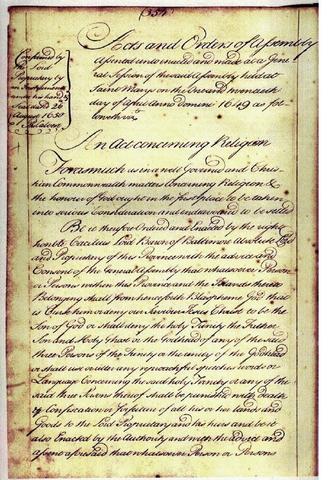 (354)
Confirmed by
the Lord
Proprietary by
an Instrument
under his hand &
Seale dated 26
August 1650
Acts and Orders of Assembly
assented unto enacted and made at a Gene
ral Session of the said Assembly held at
Saint Marys on the One and twentieth
day of Aprill Anno Domini 1649 as fol
loweth viz
An Act concerning Religion
Forasmuch as in a well Governed and Chris
tian Common wealth matters Concerning Religion &
the honour of God ought in the first place to be taken
into serious Consideration and endeavoured to be settled
Be it therefore Ordered and Enacted by the right
honble Caecilius Lord Baron of Baltemore absolute Lord
and Proprietary of this Province with the advice and
Consent of this General Assembly that whatsoever Person
or Persons within this Province and the Islands thereto
Belonging shall from henceforth Blaspheme God that
is Curse him or deny our Saviour Jesus Christ to be the
Son of God or shall deny the holy Trinity the Father
Son and Holy Ghost or the Godhead of any of the said
three Persons of the Trinity or the unity of the Godhead
or shall use or utter any reproachful speeches words or
Language Concerning the said holy Trinity or any of the
said three Persons thereof shall be punished with death
& Confiscation or forfeiture of all his or her lands and
Goods to the Lord Proprietary and his heirs and be it
also Enacted by the Authority and with the advice and
assent aforesaid that whatsoever Person or Persons